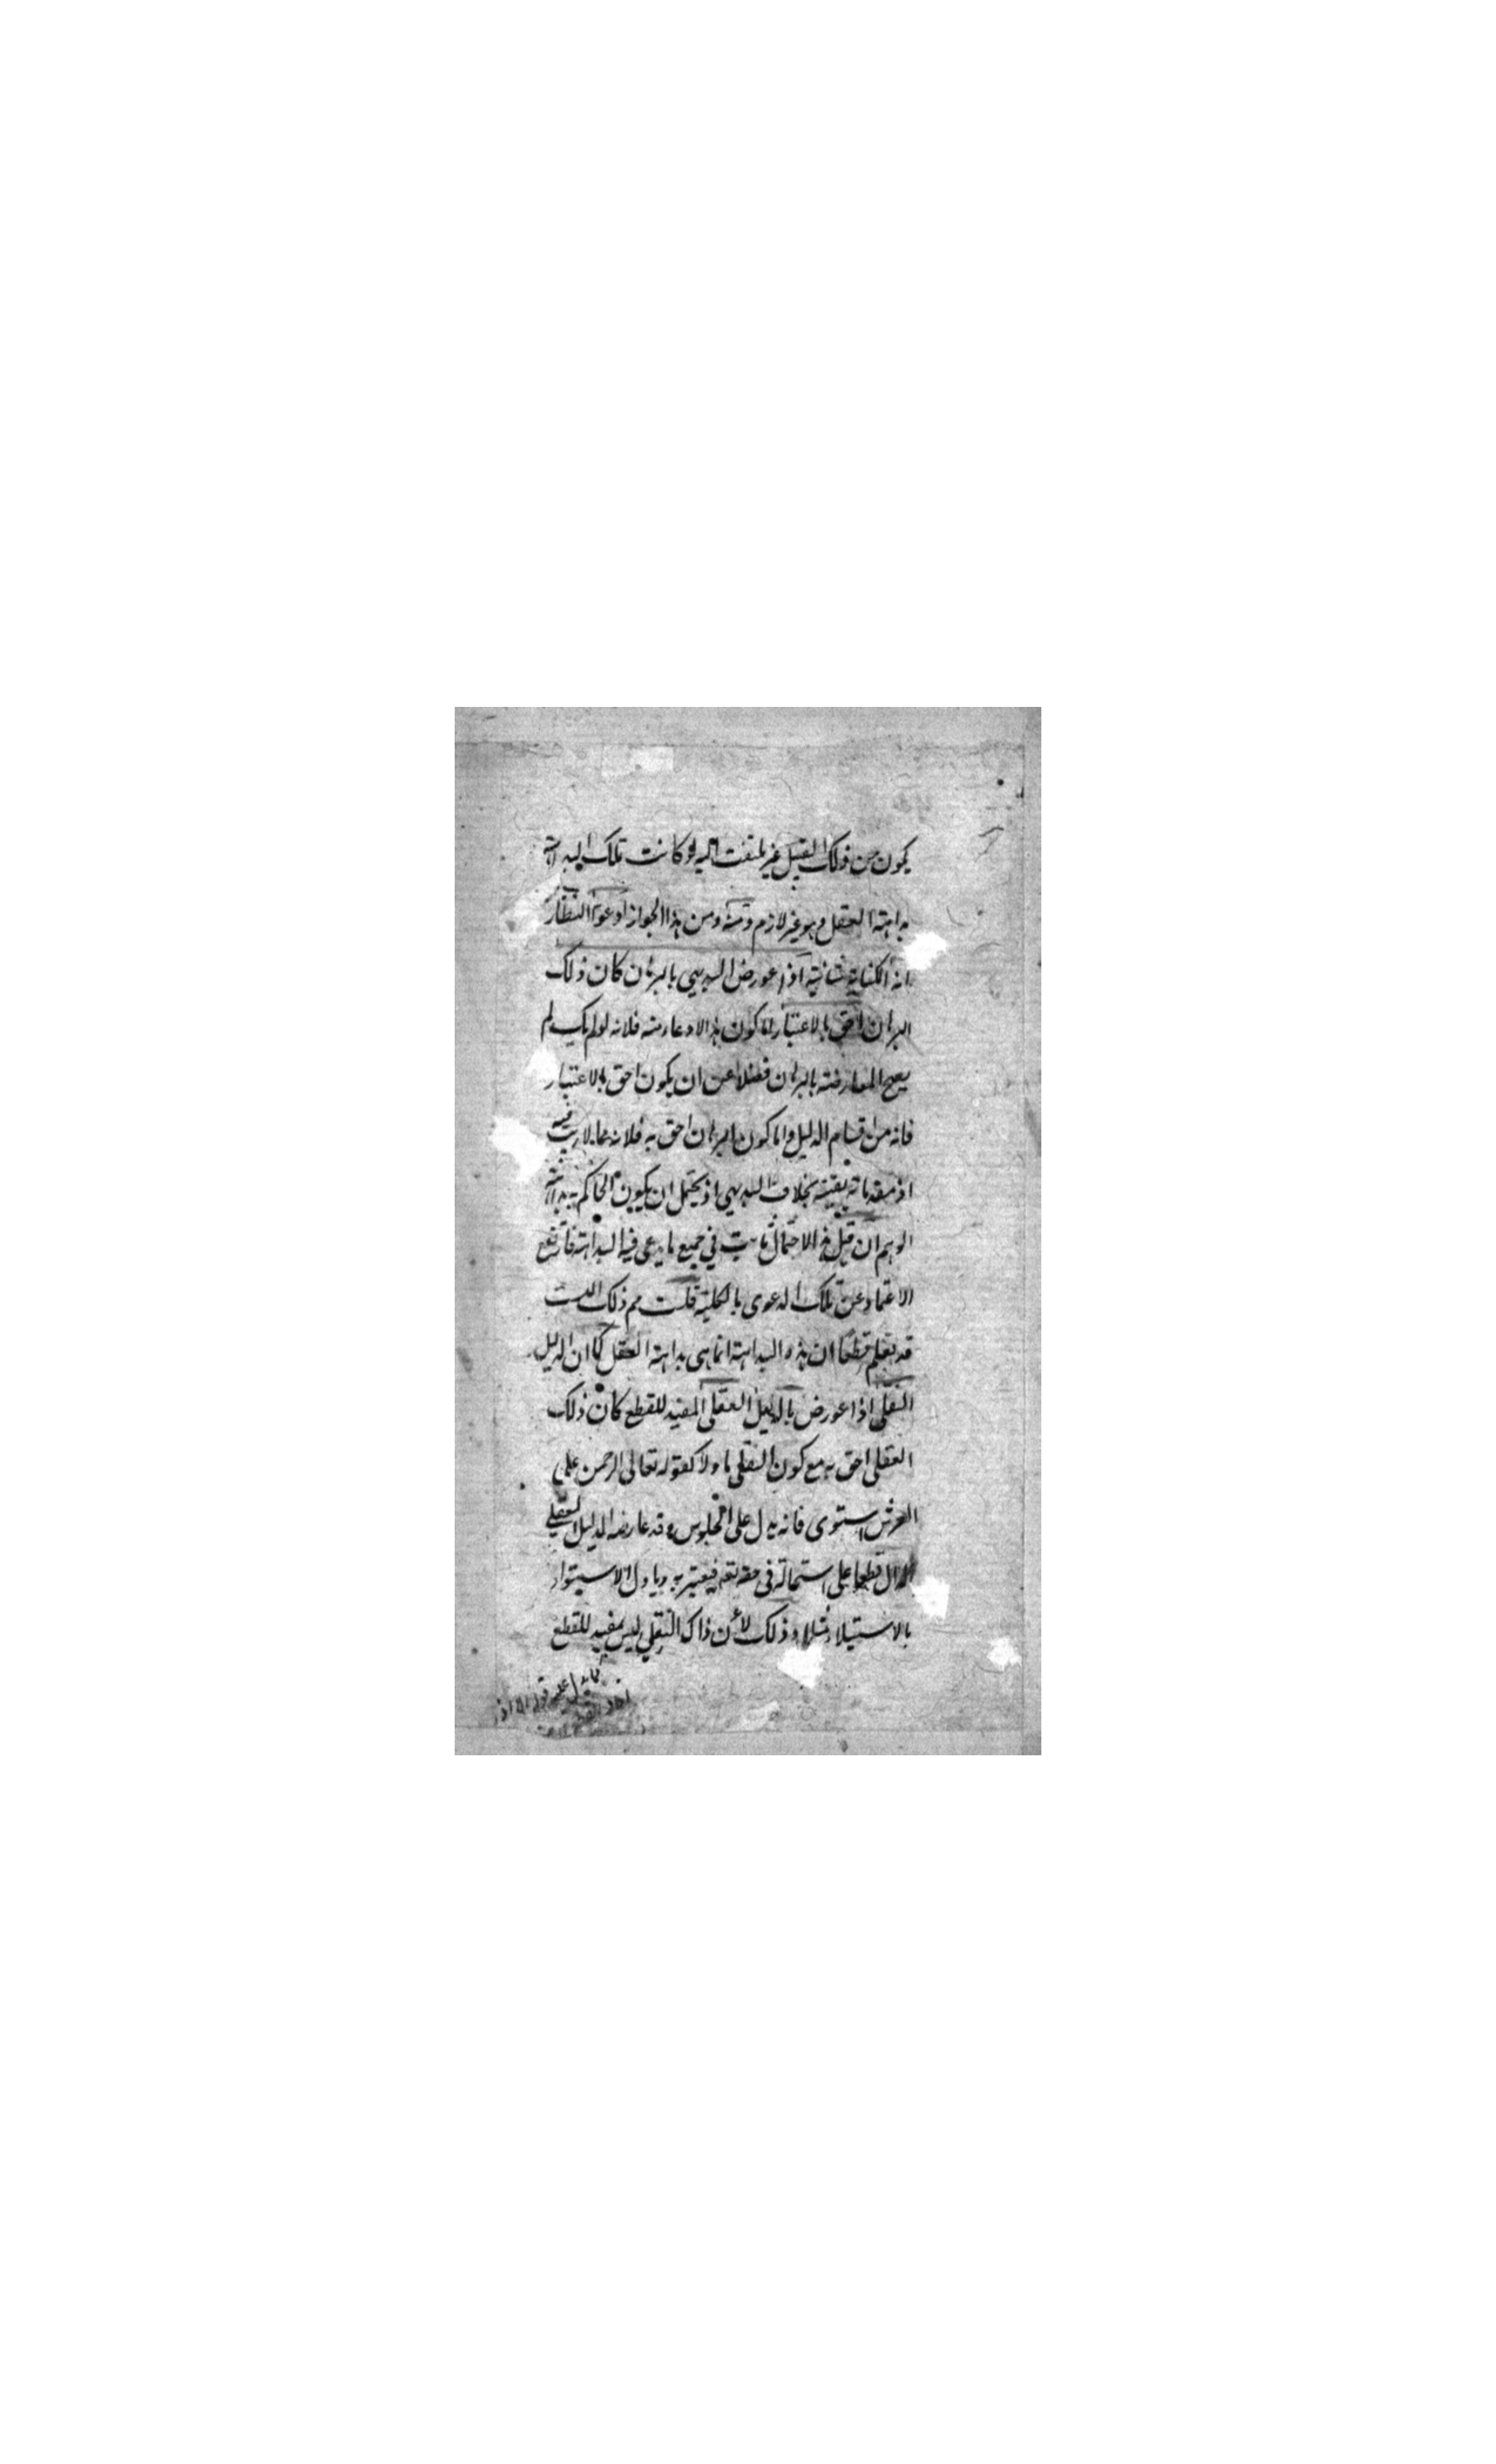 يكون من ذلك القبيل غير ملتفت اليه لو كانت تلك البداهة
بداهة العقل وهو غير لازم ومنه ومن هذا الجواز ادعوا النظار
اذا عورض البديهي بالبرهان كان ذلك
البرهان احق بالاعتبار اما كون هذا الادعاء منه فلانه لولم يك لم
يصح المعارضة بالبرهان فضلا عن ان يكون احق بالاعتبار
فانه من اقسام الدليل واما كون البرهان احق به فلانه مما لا ريب فيه
اذ مقدماته يقينية بخلاف البديهي اذ يحتمل ان يكون الحاكم به بداهة
الوهم ان قيل هذا الاحتمال ثابت في جميع ما يدعى فيه البداهة فارتفع
الاعتماد عن تلك الدعوى بالكلية قلت مم ذلك البت
قد نعلم قطعا ان هذه البداهة انما هي بداهة العقل كما ان الدليل
النقلي اذا عورض بالدليل العقلي المفيد للقطع كان ذلك
العقلي احق به مع كون النقلي ماولا كقوله تعالى الرحمن على
العرش استوى فانه يدل على الجلوس وقد عارضه الدليل العقلي
الدال قطعا على استحالته في حقه تعم فيعتبر به وياول الاستواء
بالاستيلاء مثلا وذلك لان ذاك النقلي ليس بمفيد للقطع